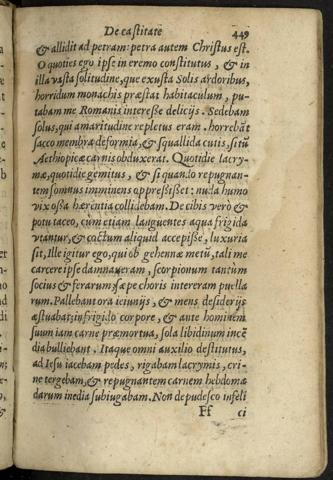 De castitate 449
& allidit ad petram: petra autem Christus est.
O quoties ego ipse in eremo constitutus, & in
illa vasta solitudine, que exusta Solis ardoribus,
horridum monachis præstat habitaculum, pu-
tabam me Romanis interesse delicijs. Sedebam
solus, qui amaritudine repletus eram. horrebāt
sacco membra deformia, & squallida cutis, sitū
Aethiopicæ carnis obduxerat. Quotidie lacry-
mæ, quotidie gemitus, & si quando repugnan-
tem somnus imminens oppressisset: nuda humo
vix ossa hærentia collidebam. De cibis vero &
potu taceo, cum etiam languentes aqua frigida
vtantur, & coctum aliquid accepisse, luxuria
sit, Ille igitur ego, qui ob gehennæ metū, tali me
carcere ipse damnaueram, scorpionum tantum
socius & ferarum: sæpe choris intereram puella
rum. Pallebant ora ieiunijs, & mens desiderijs
æstuabat: in frigido corpore, & ante hominem
suum iam carne præmortua, sola libidinum incē
dia bulliebant. Itaque omni auxilio destitutus,
ad Iesu iacebam pedes, rigabam lacrymis, cri-
ne tergebam, & repugnantem carnem hebdoma
darum inedia subiugabam. Non depudesco infeli
Ff ci